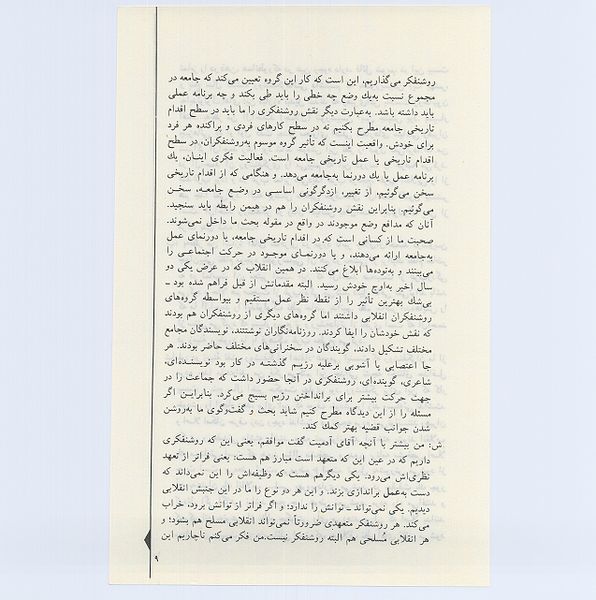 روشنفکر می‌گذاریم، این است که کار این گروه تعیین می‌کند که جامعه در
مجموع نسبت به‌یك وضع چه خطی را باید طی بکند و چه برنامه عملی
باید داشته باشد. به‌عبارت دیگر نقش روشنفکری را ما باید در سطح اقدام
تاریخی جامعه مطرح بکنیم نه در سطح کارهای فردی و پراکنده هر فرد
برای خودش. واقعیت اینست که تأثیر گروه موسوم به‌روشنفکران، در سطح
اقدام تاریخی یا عمل تاریخی جامعه است. فعالیت فکری اینان، یك
برنامه عمل یا یك دورنما به‌جامعه می‌دهد. و هنگامی که از اقدام تاریخی
سخن می‌گوئیم، از تغییر، ازدگرگونی اساسی در وضع جامعه، سخن
می‌گوئیم. بنابراین نقش روشنفکران را هم در همین رابطه باید سنجید.
آنان که مدافع وضع موجودند در واقع در مقوله بحث ما داخل نمی‌شوند.
صحبت ما از کسانی است که در اقدام تاریخی جامعه، یا دورنمای عمل
به‌جامعه ارائه می‌دهند، و یا دورنمای موجود در حرکت اجتماعی را
می‌بینند و به‌توده‌ها ابلاغ می‌کنند. در همین انقلاب که در عرض یکی دو
سال اخیر به‌اوج خودش رسید. البته مقدماتش از قبل فراهم شده بود ـ
بی‌شك بهترین تأثیر را از نقطه نظر عمل مستقیم و بیواسطه گروه‌های
روشنفکران انقلابی داشتند اما گروه‌های دیگری از روشنفکران هم بودند
که نقش خودشان را ایفا کردند. روزنامه‌نگاران نوشتند، نویسندگان مجامع
مختلف تشکیل دادند، گویندگان در سخنرانی‌های مختلف حاضر بودند. هر
جا اعتصابی یا آشوبی برعلیه رژیم گذشته در کار بود نویسنده‌ای،
شاعری، گوینده‌ای، روشنفکری در آنجا حضور داشت که جماعت را در
جهت حرکت بیشتر برای برانداختن رژیم بسیج می‌کرد. بنابراین اگر
مسئله را از این دیدگاه مطرح کنیم شاید بحث و گفت‌وگوی ما به‌روشن
شدن جوانب قضیه بهتر کمك کند.
ش: من بیشتر با آنچه آقای آدمیت گفت موافقم، یعنی این که روشنفکری
داریم که در عین این که متعهد است مبارز هم هست: یعنی فراتر از تعهد
نظری‌اش می‌رود. یکی دیگرهم هست که وظیفه‌اش را این نمی‌داند که
دست به‌عمل براندازی بزند. و این هر دو نوع را ما در این جنبش انقلابی
دیدیم. یکی نمی‌تواند ـ توانش را ندارد؛ و اگر فراتر از توانش برود، خراب
می‌کند. هر روشنفکر متعهدی ضرورتاً نمی‌تواند انقلابی مسلح هم بشود؛ و
هر انقلابی مُسلحی هم البته روشنفکر نیست.من فکر می‌کنم ناچاریم این
۹